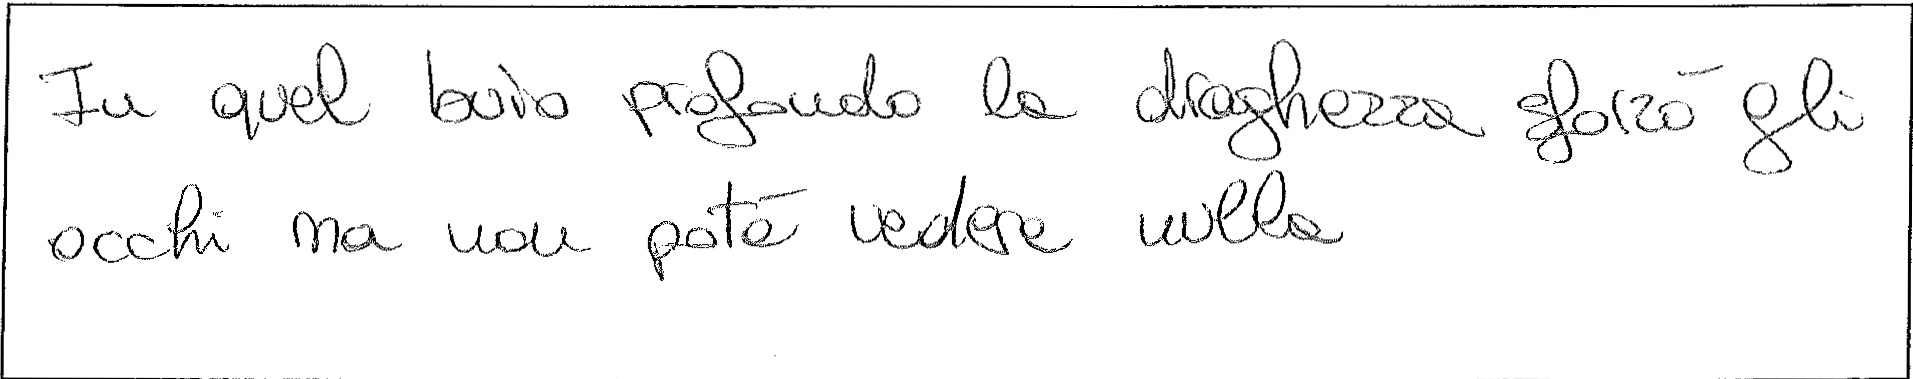 In quel buio profondo la draghezza sforzò gli
occhi ma non poté vedere nulla